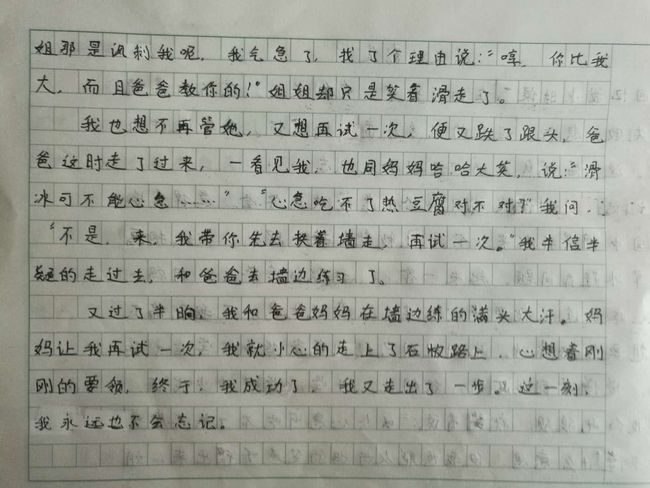 姐那是讽刺我呢，我气急了，找了个理由说：“哼，你比我
大，而且爸爸教你的！”姐姐却只是笑着滑走了。
我也想不再管她，又想再试一次，便又跌了跟头，爸
爸这时走了过来，一看见我，也同妈妈哈哈大笑，说：“滑
冰可不能心急……”“心急吃不了热豆腐对不对？”我问.
“不是，来，我带你先去扶着墙走，再试一次。”我半信半
疑的走过去，和爸爸去墙边练习了。
又过了半晌，我和爸爸妈妈在墙边练的满头大汗。妈
妈让我再试一次，我就小心的走上了石板路上，心想着刚
刚的要领，终于，我成功了，我又走出了一步。这一刻，
我永远也不会忘记。